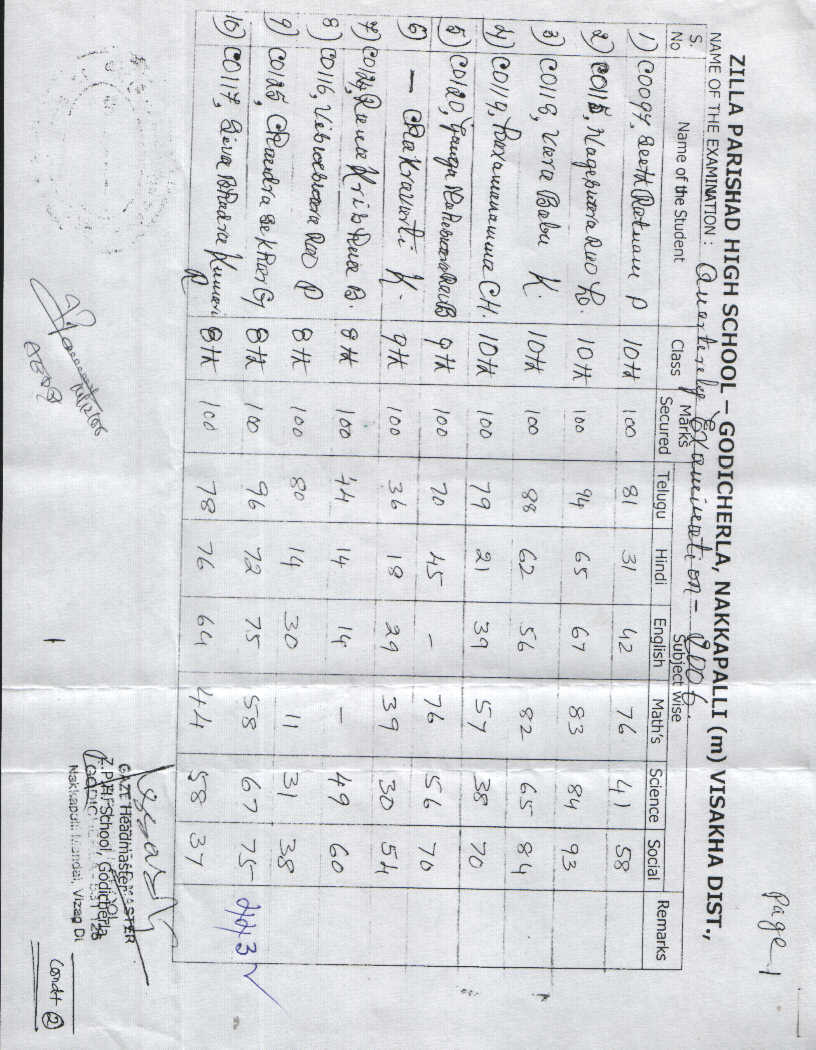 Page 1
ZILLA PARISHAD HIGH SCHOOL – GODICHERLA, NAKKAPALLI (m) VISAKHA DIST.,
NAME OF THE EXAMINATION : Quarterely Examination – 2006.
S. No Name of the Student Class Marks Secured Subject Wise Remarks
Telugu Hindi English Math's Science Social
1) C0097, Seeth Ratnam P 10th 100 81 31 42 76 41 58
2) C0115, Nageswara Rao Lo. 10th 100 94 65 67 83 84 93
3) C0118, Vara Babu K. 10th 100 88 62 56 82 65 84
4) C0119, CH. 10th 100 79 21 39 57 38 70
5) C0120, Ganga B 9th 100 70 45 – 76 56 70
6) – Chakravarti K. 9th 100 36 18 29 39 30 54
7) C0124, Rama Krishna B. 8th 100 44 14 14 – 49 60
8) C0116, Rao P 8th 100 80 14 30 11 31 38
9) C0125, Chandra Sekhar G 8th 100 96 72 75 58 67 75 443
10) C0117, Siva Bhadra Kumari R 8th 100 78 76 64 44 58 37
1
GAZT Headmaster
Z.P.H. School, Godicherla
Nakkapalli Mandal, Vizag Di
Condt 2